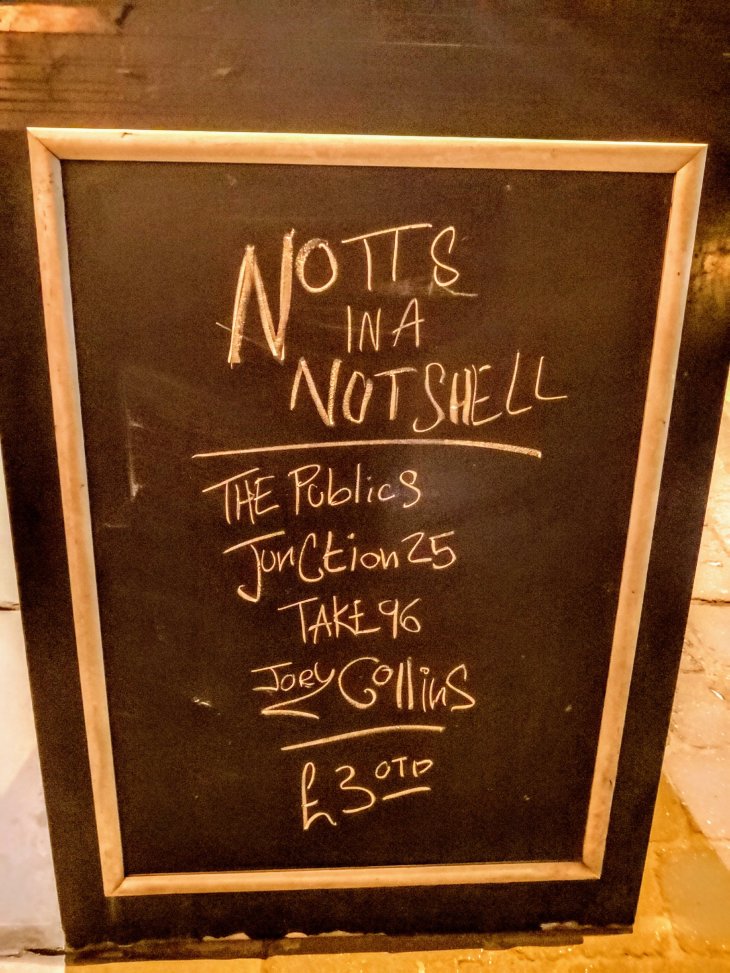 NOTTS
IN A
NOTSHELL
THE Publics
Junction 25
TAKE 96
Joey Collins
£3 OTD